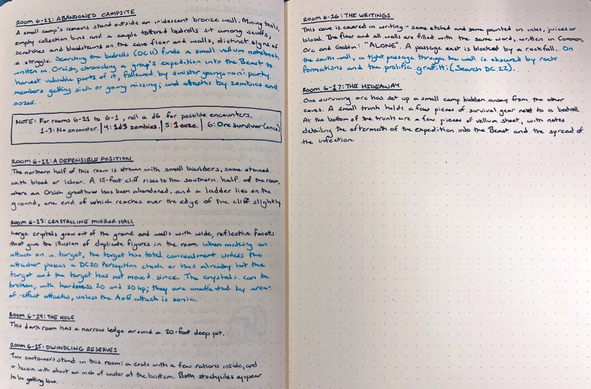 ROOM 6-11: ABANDONED CAMPSITE
A small camp's remains stand outside an iridescent bronze wall. Mining tools,
empty collection bins and a couple tattered bedrolls sit among scuffs,
scratches and bloodstains on the cave floor and walls, distinct signs of
a struggle. Searching the bedrolls (DC11) finds a small vellum notebook
written in Orcish, chronicling a group's expedition into the Beast to
harvest valuable parts of it, followed by sinister goings-on: party
members getting sick or going missing; and attacks by zombies and
oozes.
NOTE: For rooms 6-11 to 6-1, roll a d6 for possible encounters.
1-3: No encounter | 4: 1d3 zombies. | 5: 1 ooze. | 6: One survivor (once)
ROOM 6-12: A DEFENSIBLE POSITION
The northern half of this room is strewn with small boulders, some stained
with blood or ichor. A 15-foot cliff rises to the southern half of the room,
where an Orcish greatbow has been abandoned, and a ladder lies on the
ground, one end of which reaches over the edge of the cliff slightly
ROOM 6-13: CRYSTALLINE MIRROR HALL
Large crystals grow out of the ground and walls with wide, reflective facets
that give the illusion of duplicate figures in the room. When making an
attack on a target, the target has total concealment unless the
attacker passes a DC20 Perception check or has already hit the
target and the target has not moved since. The crystals can be
broken, with hardness 20 and 20 hp; they are unaffected by area-
of-effect attacks, unless the AoE attack is sonic.
ROOM 6-14: THE HOLE
This dark room has a narrow ledge around a 20-foot deep pit.
ROOM 6-15: DWINDLING RESERVES
Two containers stand in this room: a crate with a few rations inside, and
a basin with about an inch of water at the bottom. Both stockpiles appear
to be getting low.
ROOM 6-16: THE WRITINGS
This cave is covered in writing - some etched and some painted in inks, juices or
blood. The floor and all walls are filled with the same word, written in Common,
Orc and Goblin: "ALONE". A passage east is blocked by a rockfall. On
the south wall, a tight passage through the wall is obscured by rock
formations and the prolific graffiti (Search DC 22).
ROOM 6-17: THE HIDEAWAY
One surviving orc has set up a small camp hidden away from the other
caves. A small trunk holds a few pieces of survival gear next to a bedroll.
At the bottom of the trunk are a few pieces of vellum sheet, with notes
detailing the aftermath of the expedition into the Beast and the spread of
the infection.